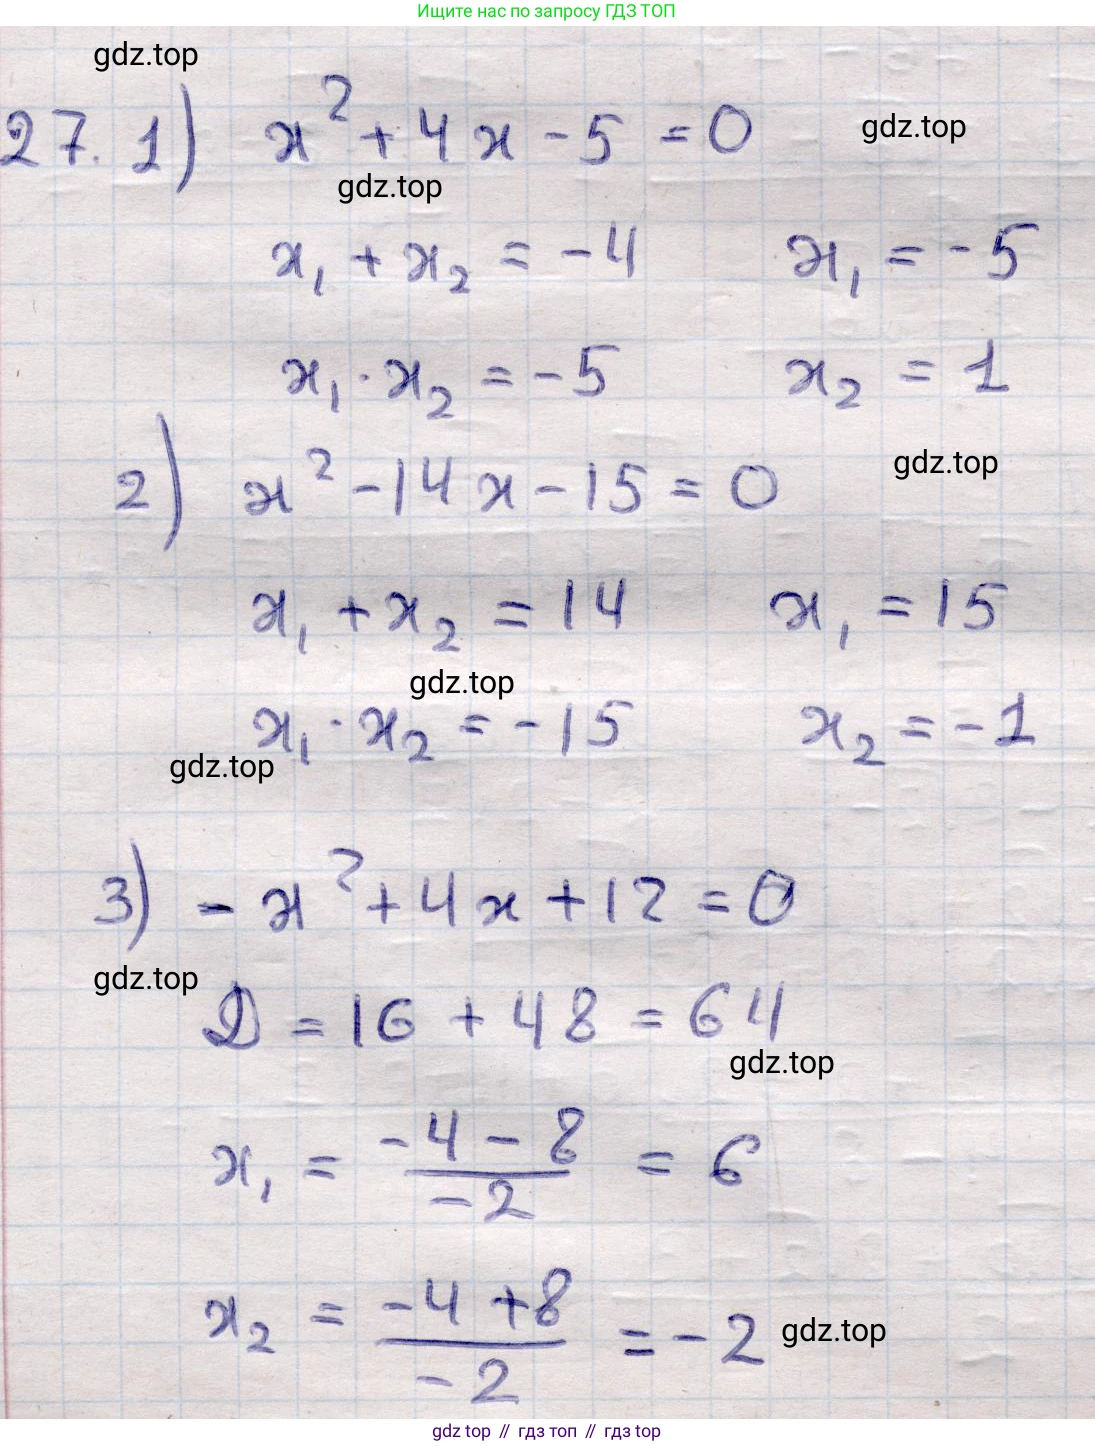 Ищите нас по запросу ГДЗ ТОП
gdz.top
27. 1) x² + 4x - 5 = 0
gdz.top
gdz.top
x₁ + x₂ = -4 x₁ = -5
x₁ · x₂ = -5 x₂ = 1
2) x² - 14x - 15 = 0
gdz.top
x₁ + x₂ = 14 x₁ = 15
gdz.top
x₁ · x₂ = -15 x₂ = -1
gdz.top
3) -x² + 4x + 12 = 0
gdz.top
D = 16 + 48 = 64
gdz.top
x₁ = (-4 - 8)/(-2) = 6
x₂ = (-4 + 8)/(-2) = -2
gdz.top
gdz top // гдз топ // гдз top